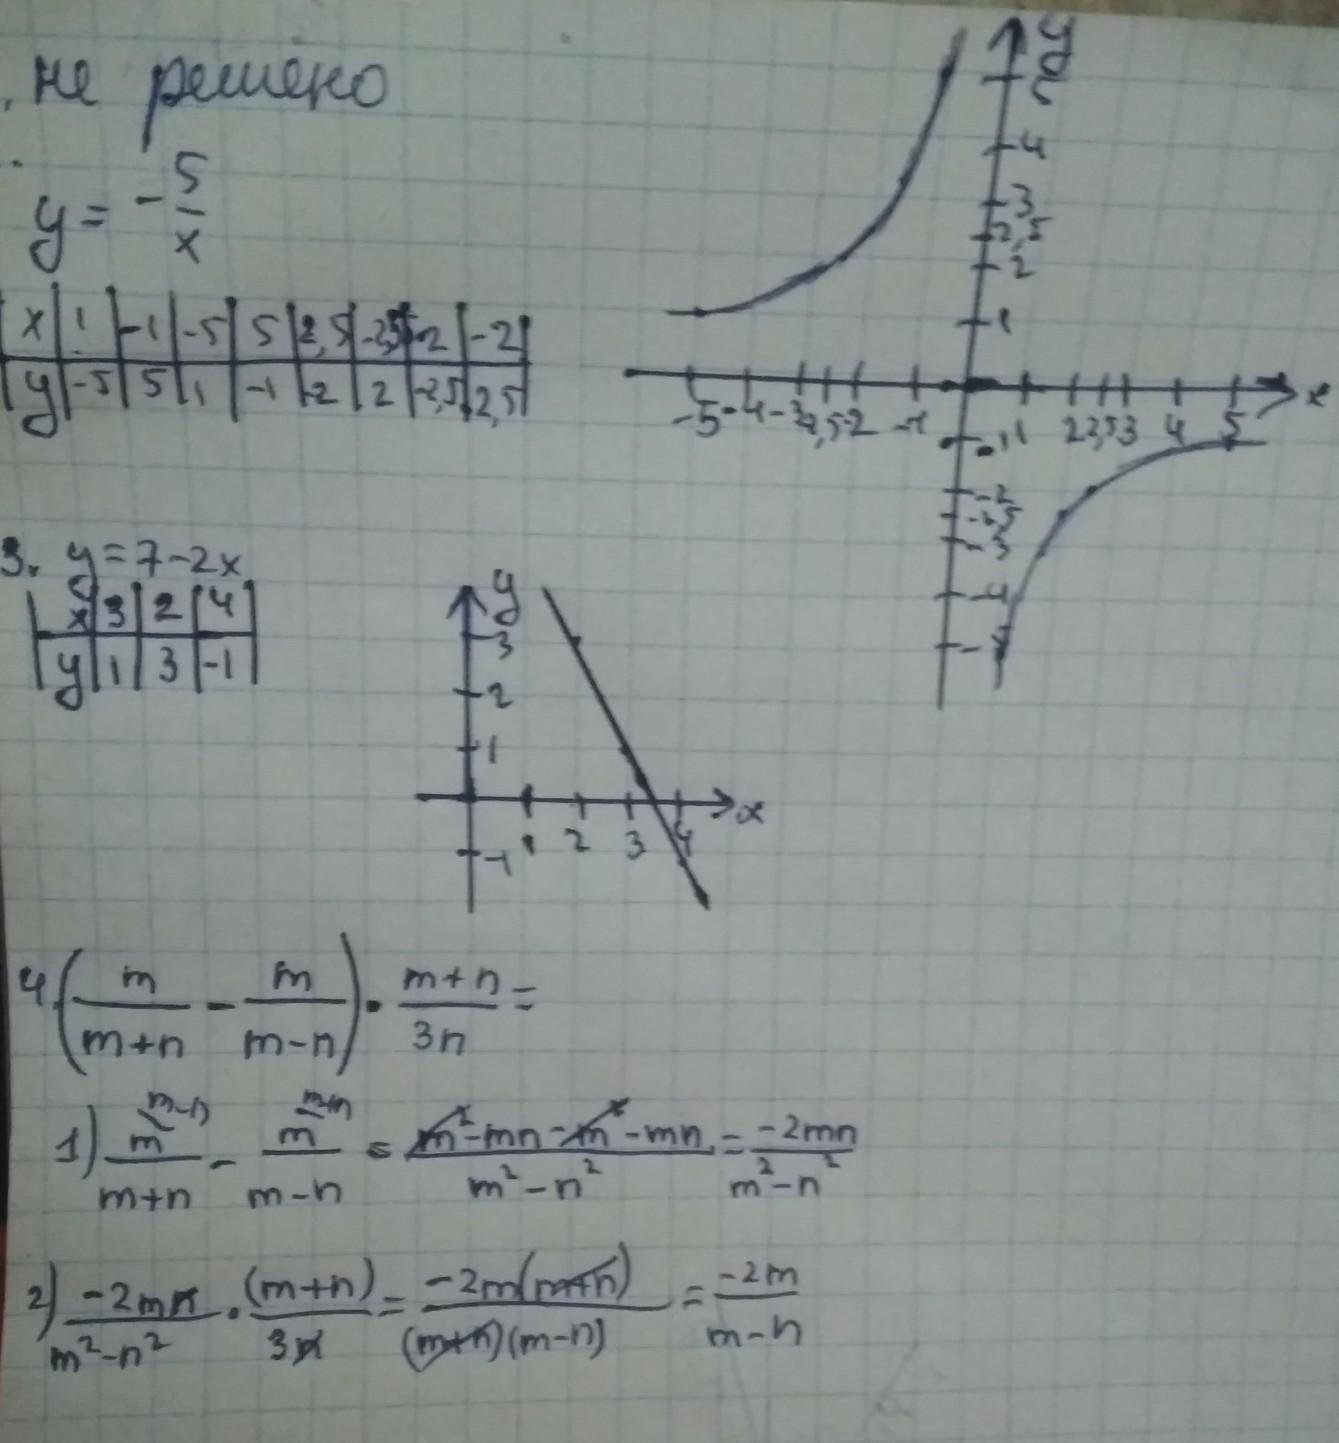 не решено
y = -5/x
x | 1 | -1 | -5 | 5 | 2,5 | -2,5 | 2 | -2
y | -5 | 5 | 1 | -1 | -2 | 2 | -2,5 | 2,5
y
5
4
3
2,5
2
1
-5 -4 -3 -2,5 -2 -1 1 2 2,5 3 4 5 x
-2
-2,5
-3
-4
3. y = 7 - 2x
x | 3 | 2 | 4
y | 1 | 3 | -1
y
3
2
1
1 2 3 4 x
-1
4. (m/(m+n) - m/(m-n)) · (m+n)/3n =
1) m^(m-n)/(m+n) - m^(m+n)/(m-n) = (m² - mn - m² - mn)/(m² - n²) = -2mn/(m² - n²)
2) -2mn/(m² - n²) · (m+n)/3n = -2m(m+n)/((m+n)(m-n)) = -2m/(m-n)